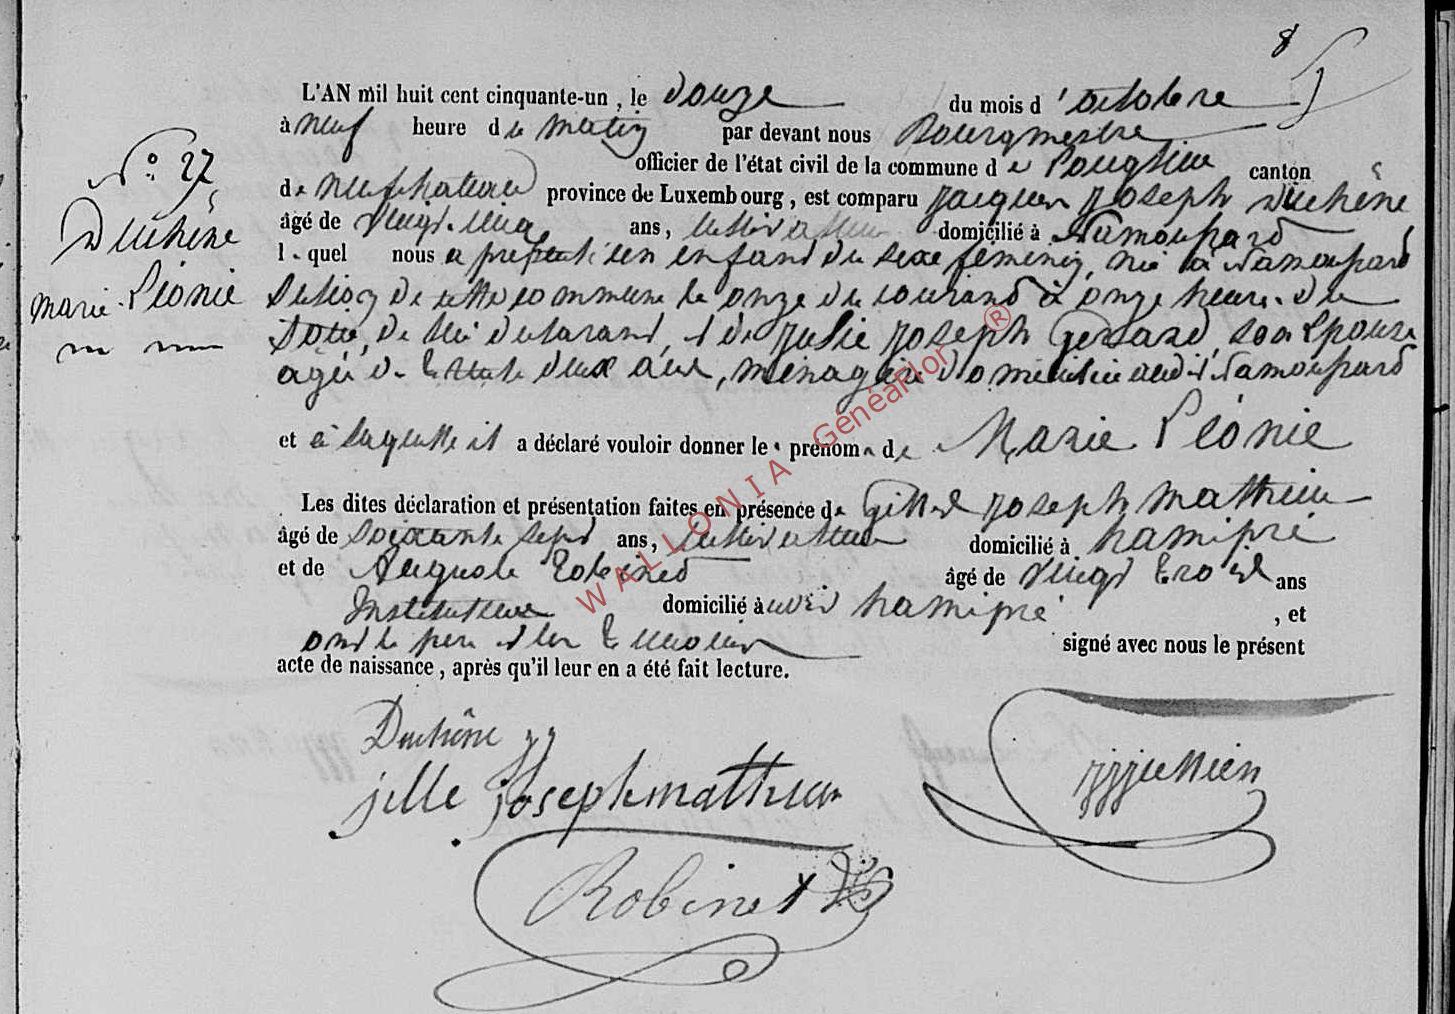 8
L'AN mil huit cent cinquante-un, le douze du mois d'octobre
à neuf heure du matin par devant nous Bourgmestre
officier de l'état civil de la commune de Longlier canton
N.° 27
de neufchateau province de Luxembourg, est comparu Jacques Joseph Duchêne
âgé de vingt ans, cultivateur domicilié à Namoussart
Duchêne
l quel nous a présenté un enfant du sexe féminin, née à Namoussart
Marie Léonie
section de cette commune le onze du courant à onze heure du
soir, de lui déclarant, et de Julie Joseph Gerard, son Epouse
agée de trente deux ans, ménagère domiciliée audit Namoussart
et à laquelle il a déclaré vouloir donner le prénom de Marie Léonie
Les dites déclaration et présentation faites en présence de Gille Joseph Mathieu
âgé de soixante sept ans, cultivateur domicilié à hamipré
et de Auguste Robinet âgé de vingt trois ans
Instituteur domicilié à hamipré, et
ont le père et les témoins signé avec nous le présent
acte de naissance, après qu'il leur en a été fait lecture.
Duchêne jj
jille joseph mathieu
Robinet
WALLONIA GénéaFlor ®